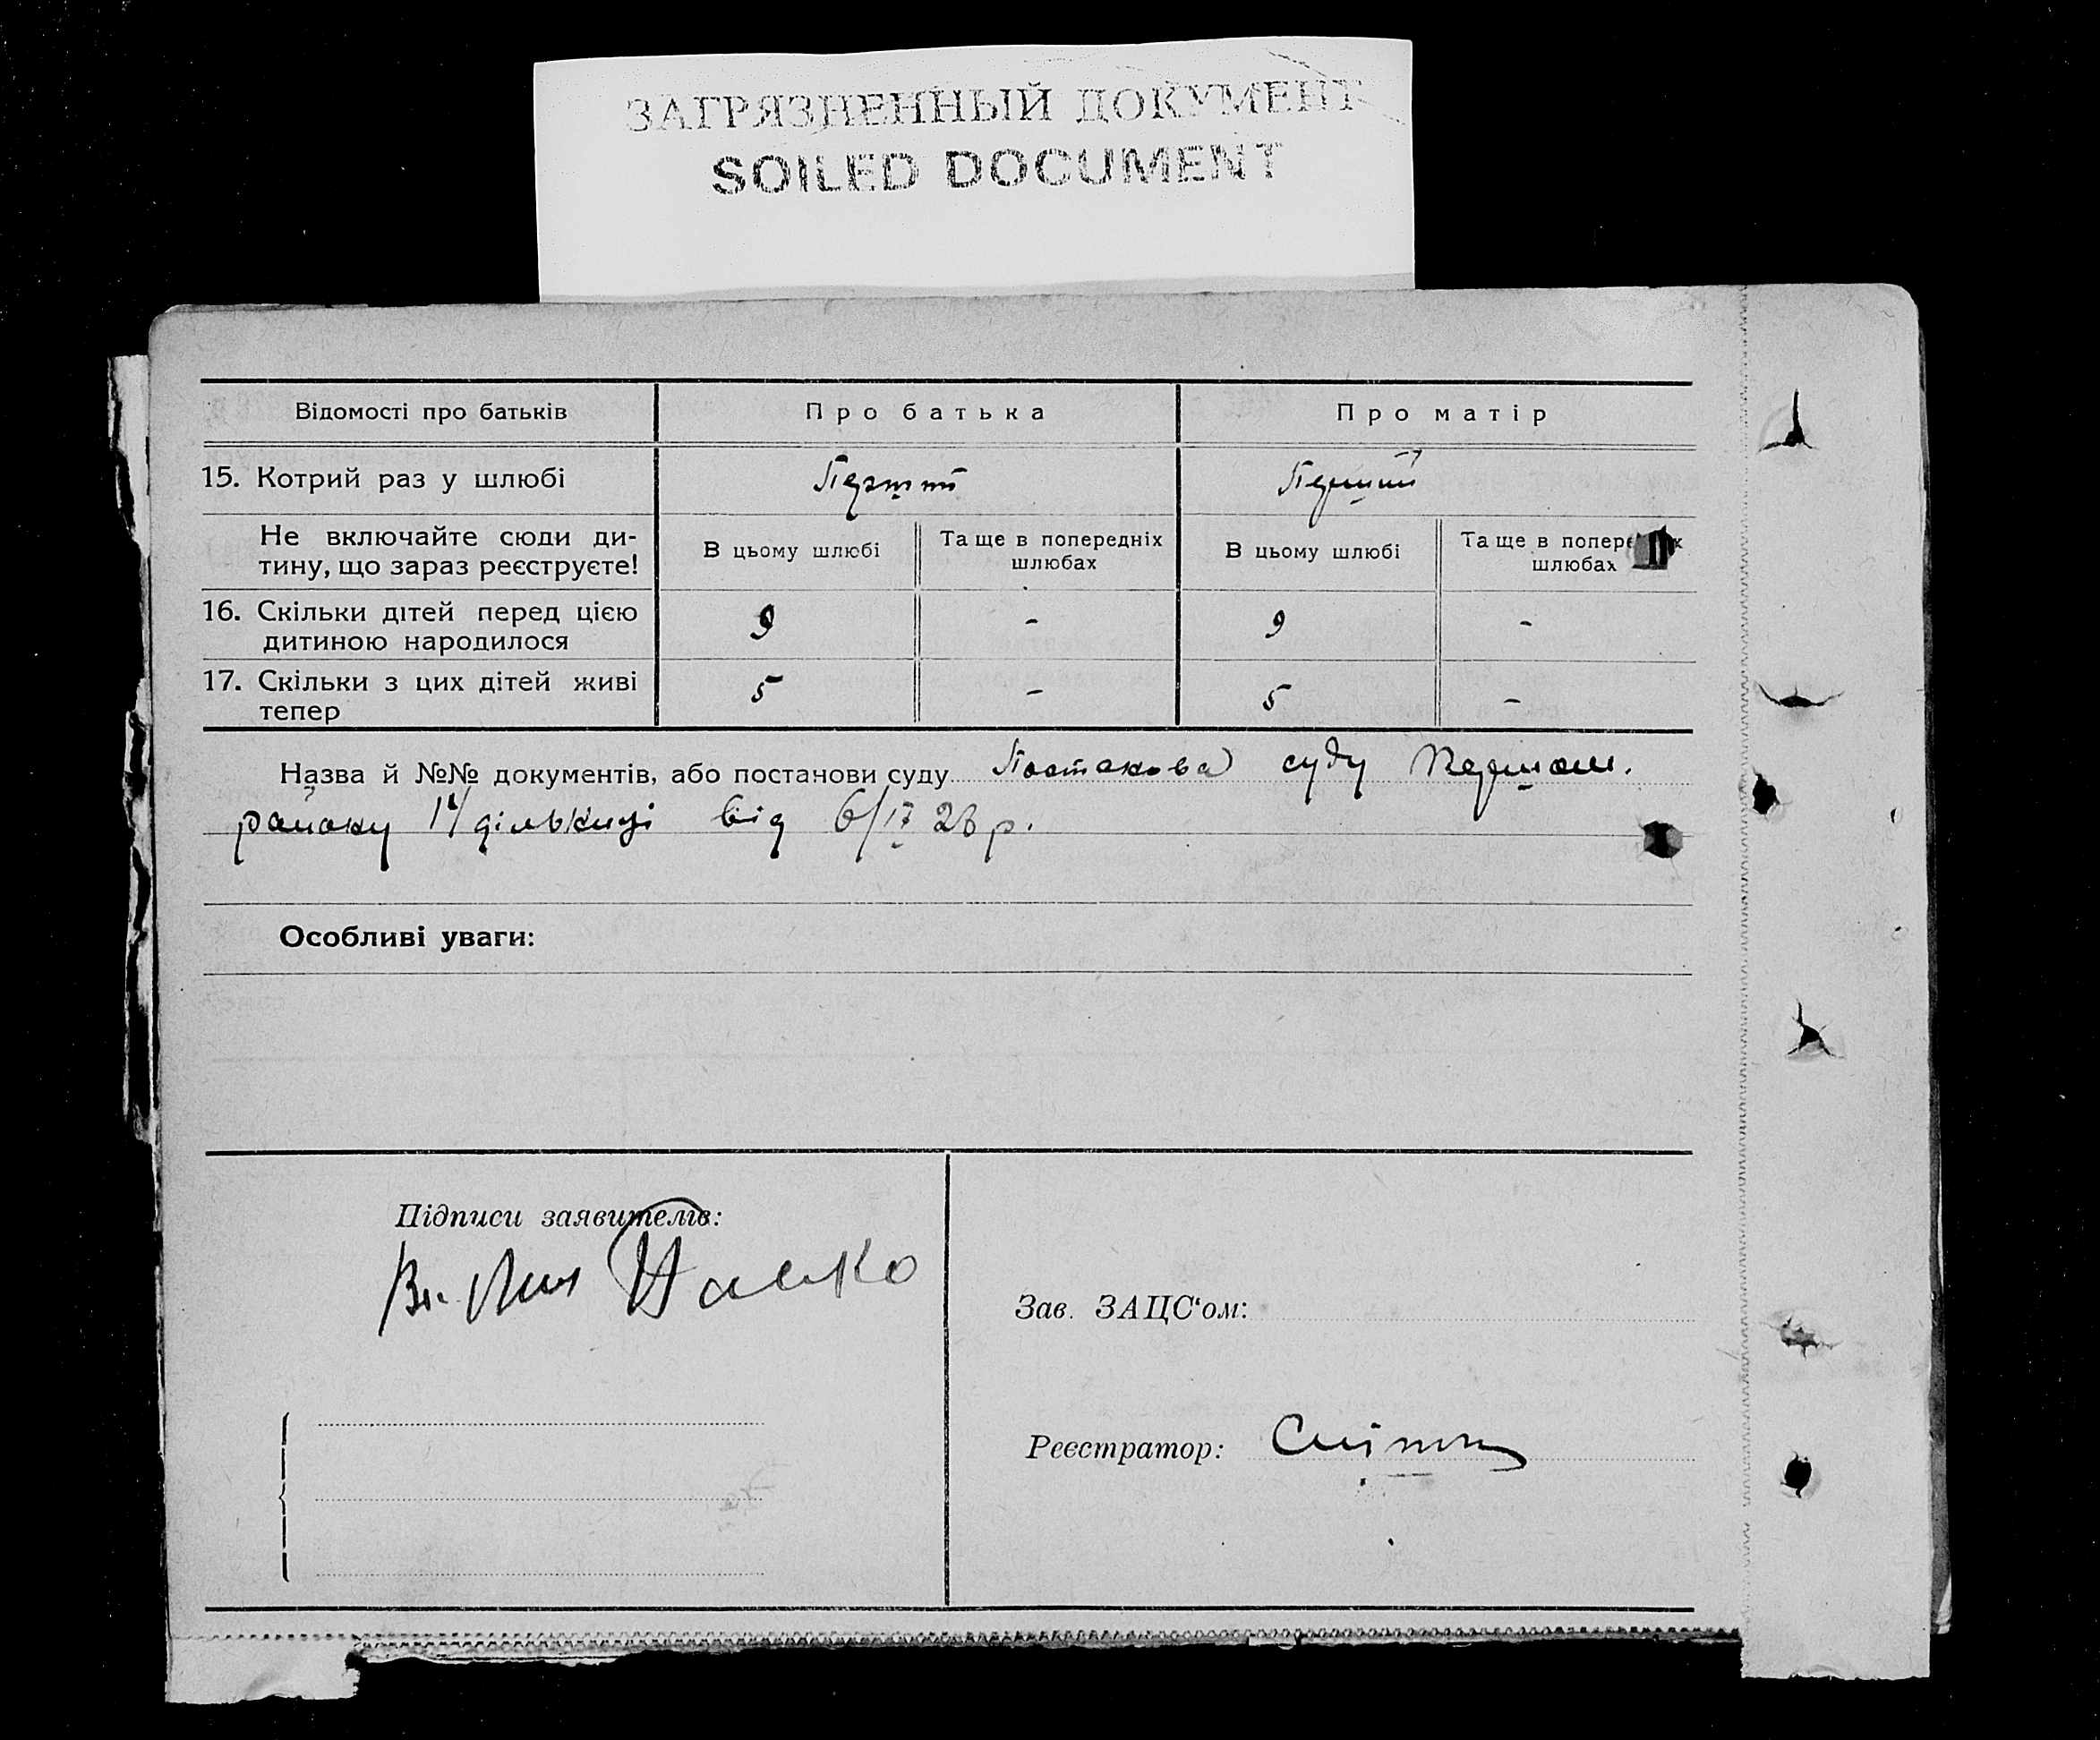 ЗАГРЯЗНЕННЫЙ ДОКУМЕНТ
SOILED DOCUMENT
Відомості про батьків Про батька Про матір
15. Котрий раз у шлюбі Перший Перший
Не включайте сюди ди-
тину, що зараз реєструєте!
В цьому шлюбі Та ще в попередніх
шлюбах
В цьому шлюбі Та ще в попередніх
шлюбах
16. Скільки дітей перед цією
дитиною народилося
9 - 9 -
17. Скільки з цих дітей живі
тепер
5 - 5 -
Назва й №№ документів, або постанови суду Постанова суду Першом.
району дільниці від 6/IV 28 р.
Особливі уваги:
Підписи заявителів:
Зав. ЗАЦС'ом:
Реєстратор: